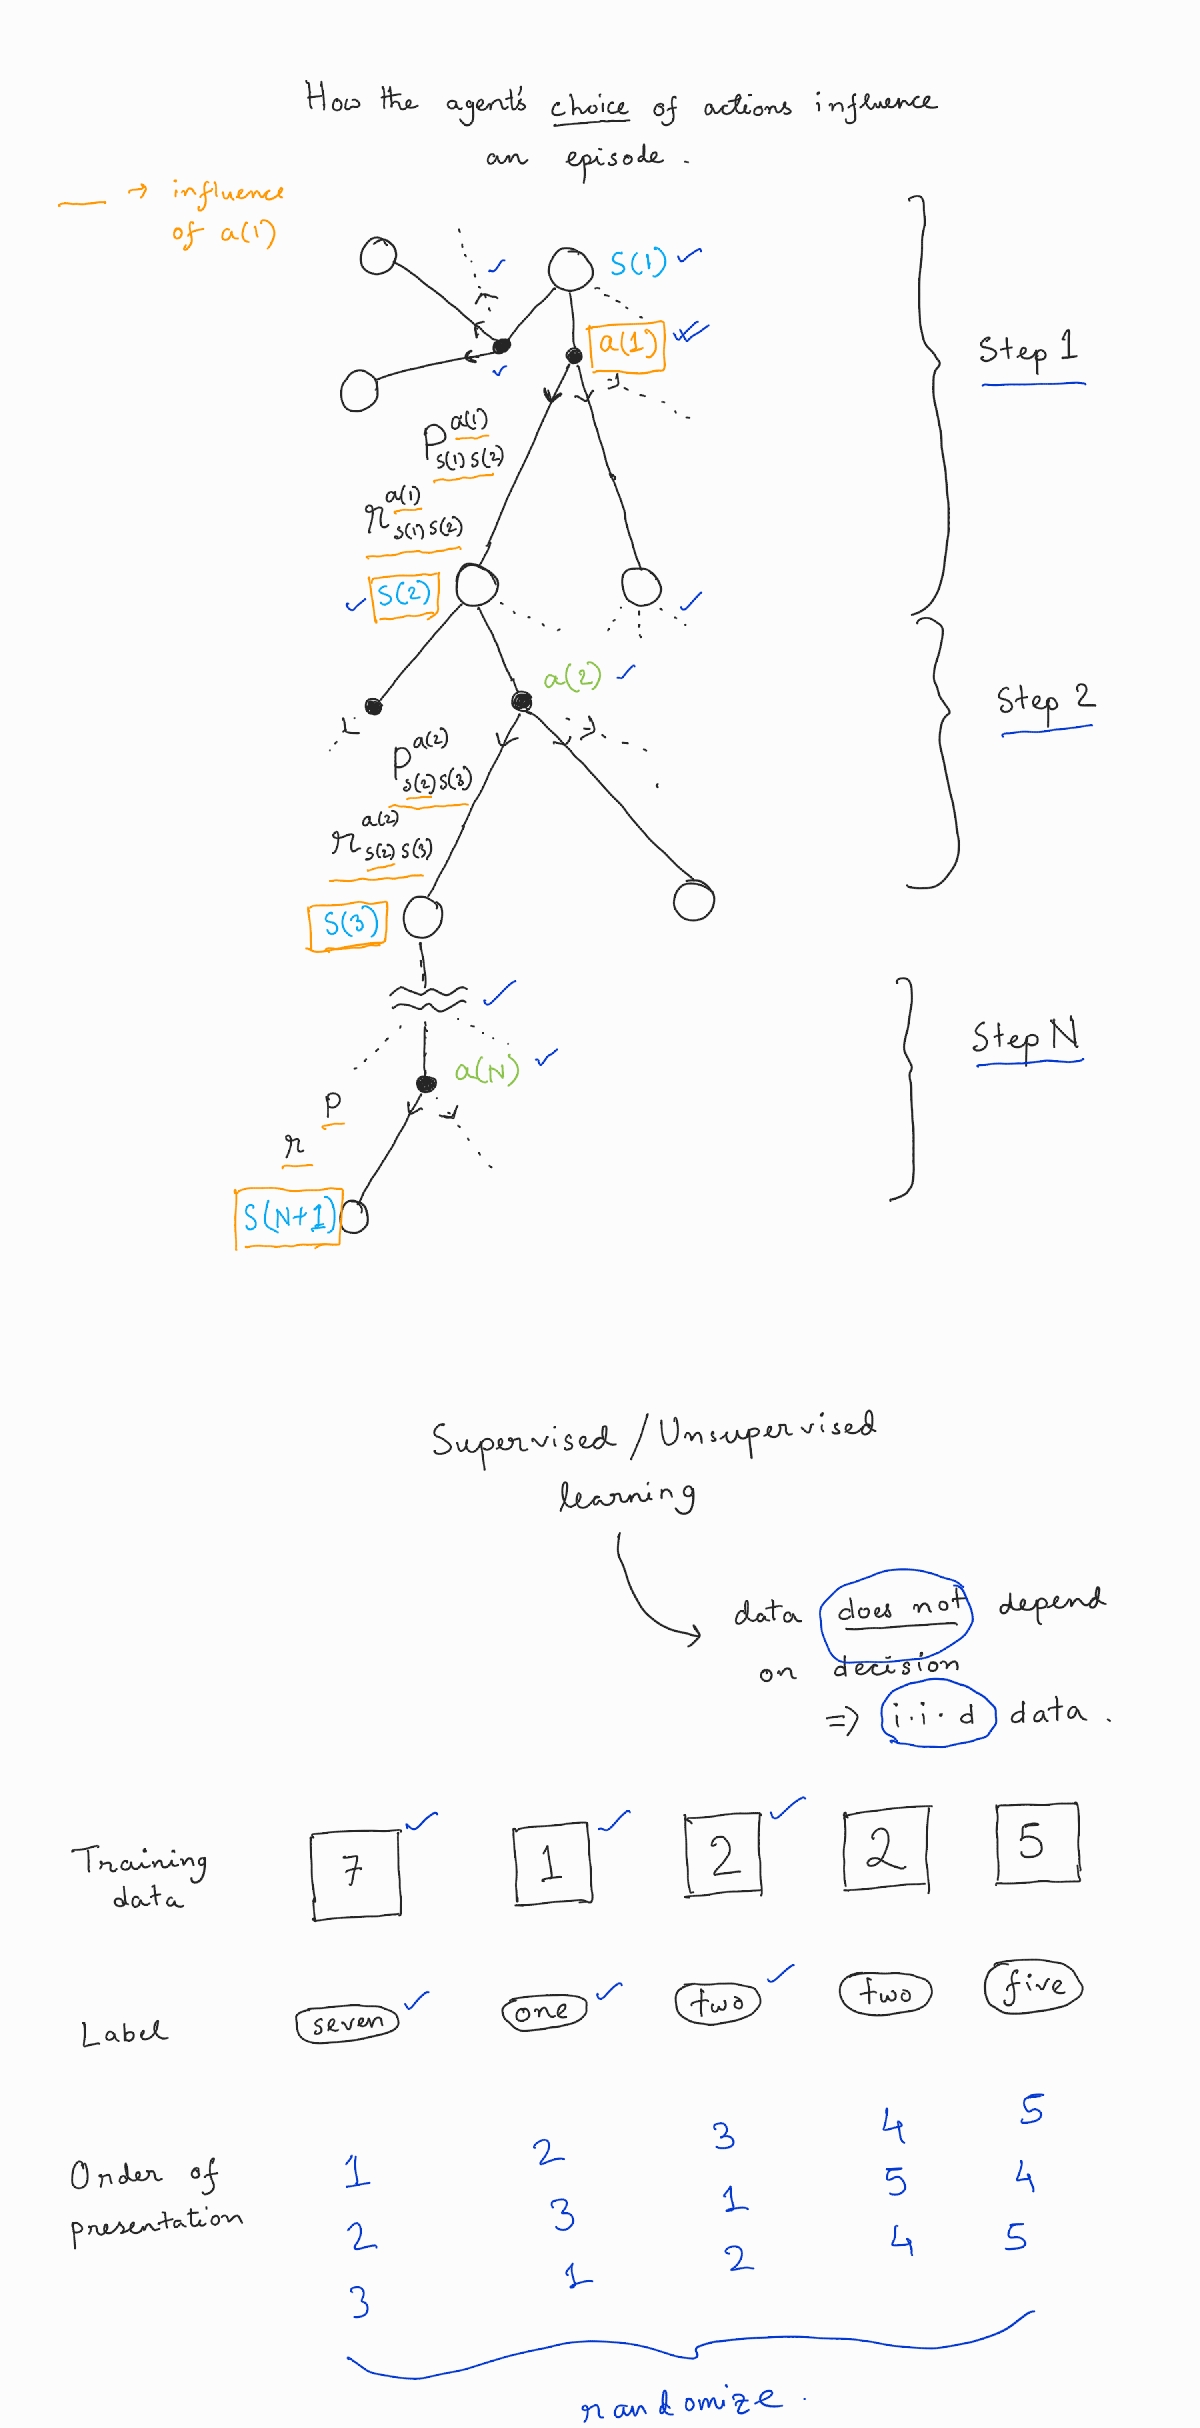 How the agent's choice of actions influence
an episode.
→ influence
of a(1)
S(1)
a(1)
Step 1
P a(1) s(1) s(2)
r a(1) s(1) s(2)
S(2)
a(2)
Step 2
P a(2) s(2) s(3)
r a(2) s(2) s(3)
S(3)
Step N
a(N)
P
r
S(N+1)
Supervised / Unsupervised
learning
data does not depend
on decision
=> i.i.d data.
Training data 7 1 2 2 5
Label seven one two two five
Order of presentation
1 2 3 4 5
2 3 1 5 4
3 1 2 4 5
randomize.